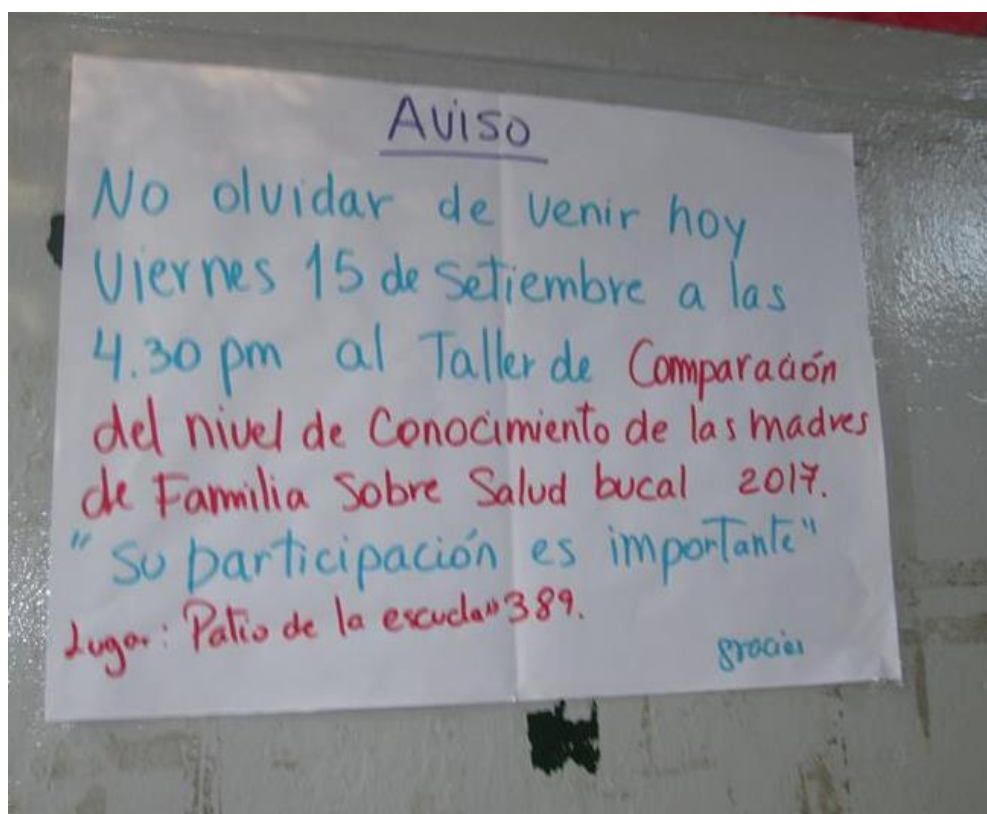 AVISO
No olvidar de venir hoy
Viernes 15 de setiembre a las
4.30 pm al Taller de Comparación
del nivel de Conocimiento de las madres
de Familia Sobre Salud bucal 2017.
"Su participación es importante"
Lugar: Patio de la escuela nº 389.
gracias